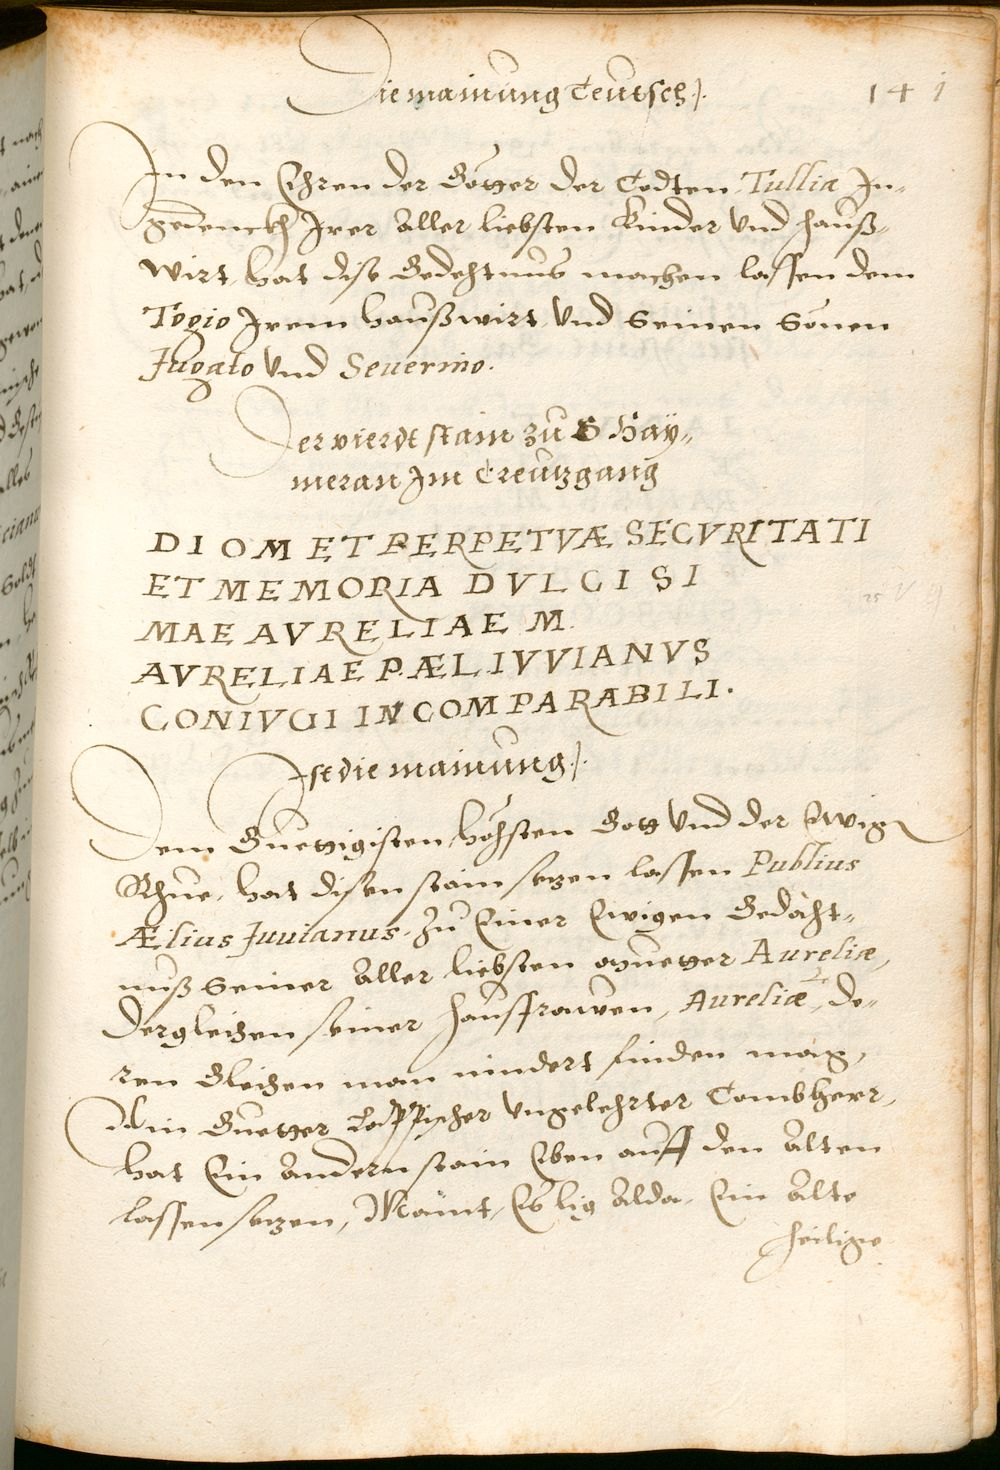 Die mainung Teutsch /. 141
In den Ehren der Götter der Todten Tullia In-
gedenckh Irer aller liebsten Kinder und Hauß-
wirt, hat dise Gedechtnus machen lassen dem
Togio Irem Haußwirt, und Seinen Sönen
Jugato und Seuerino.
Der vierdt stain zu S Hay-
meran Im Creutzgang
DI OM ET PERPETVÆ SECVRITATI
ET MEMORIA DVLCI SI
MAE AVRELIAE M.
AVRELIAE P.ÆL.IVVIANVS
CONIVGI INCOMPARABILI.
Ist die mainung /.
Dem Guettigisten, höchsten Gott und der Ewign
Rhue, hat disen stain sezen lassen Publius
Ælius Juuianus. Zu Einer Ewigen Gedächt-
nuß Seiner aller liebsten Muetter Aureliæ,
dergleichen seiner Hausfrawen, Aureliæ, de-
ren Gleichen man nindert finden mag,
Ain Guetter Lappischer Ungelehrter Tombherr,
hat Ein andern stain Eben auff den alten
lassen sezen, Maint, Es lig alda Ein alte
heilige